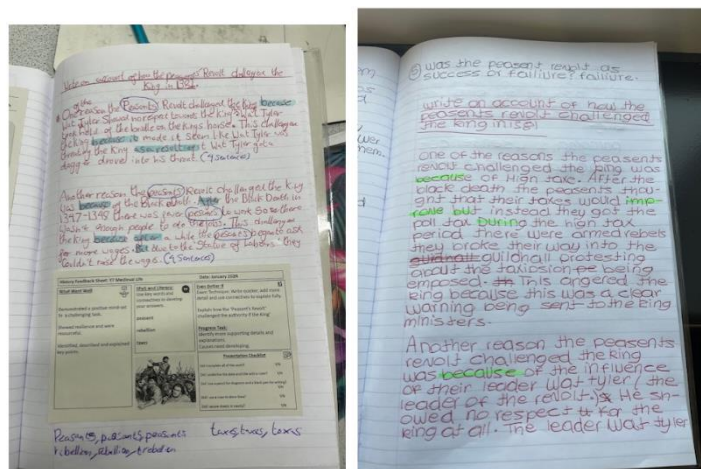 Write an account of how the peasants Revolt challenge the
King in 1381.
One of the reason the Peasants Revolt challenged the king because
Wat Tyler Showed no respect towards the King. Wat Tyler
took held of the bridle on the King's horse. This challenge
the King because it made it seem like Wat Tyler was
threating the King as a result Wat Tyler got a
dagger drove into his throat. (4 Sentences)
Another reason the peasants Revolt challenged the King
was because of the black death. After the Black Death in
1347-1348 there was fewer peasants to work So so there
wasn't enough people to do the jobs. This challenged
the King because after a while the peasants began to ask
for more wages. But due to the Statue of Labours they
couldn't raise the wages. (4 Sentences)
History Feedback Sheet: Y7 Medieval Life
Date: January 2024
What Went Well
Demonstrated a positive mind-set
to a challenging task.
Showed resilience and were
resourceful.
Identified, described and explained
key points.
Use key words and
connectives to develop
your answers.
peasant
rebellion
taxes
Even Better If
detail and use connectives to explain fully.
Explain how the 'Peasant's Revolt'
challenged the authority if the King'
Progress Task:
Identify more supporting details and
explanations.
Causes need developing.
Presentation Checklist
Peasants, peasants, peasants
rebellion, rebellion, rebellion
taxes, taxes, taxes
was the peasent revolt as
success or failiure? failiure.
write an account of how the
peasents revolt challenged
the king in 1381
One of the reasons the peasents
revolt challenged the king was
because of High tax. After the
black death the peasents thou-
ght that their taxes would imp-
rove but instead they got the
poll tax. During the high tax
period there were armed rebels
they broke their way into the
guildhall protesting
about the taxiosion being
emposed. This angered the
king because this was a clear
warning being sent to the king
ministers.
Another reason the peasents
revolt challenged the king
was because of the influence
of their leader wat tyler (the
leader of the revolt.) He sh-
owed no respect for the
king at all. The leader wat tyler